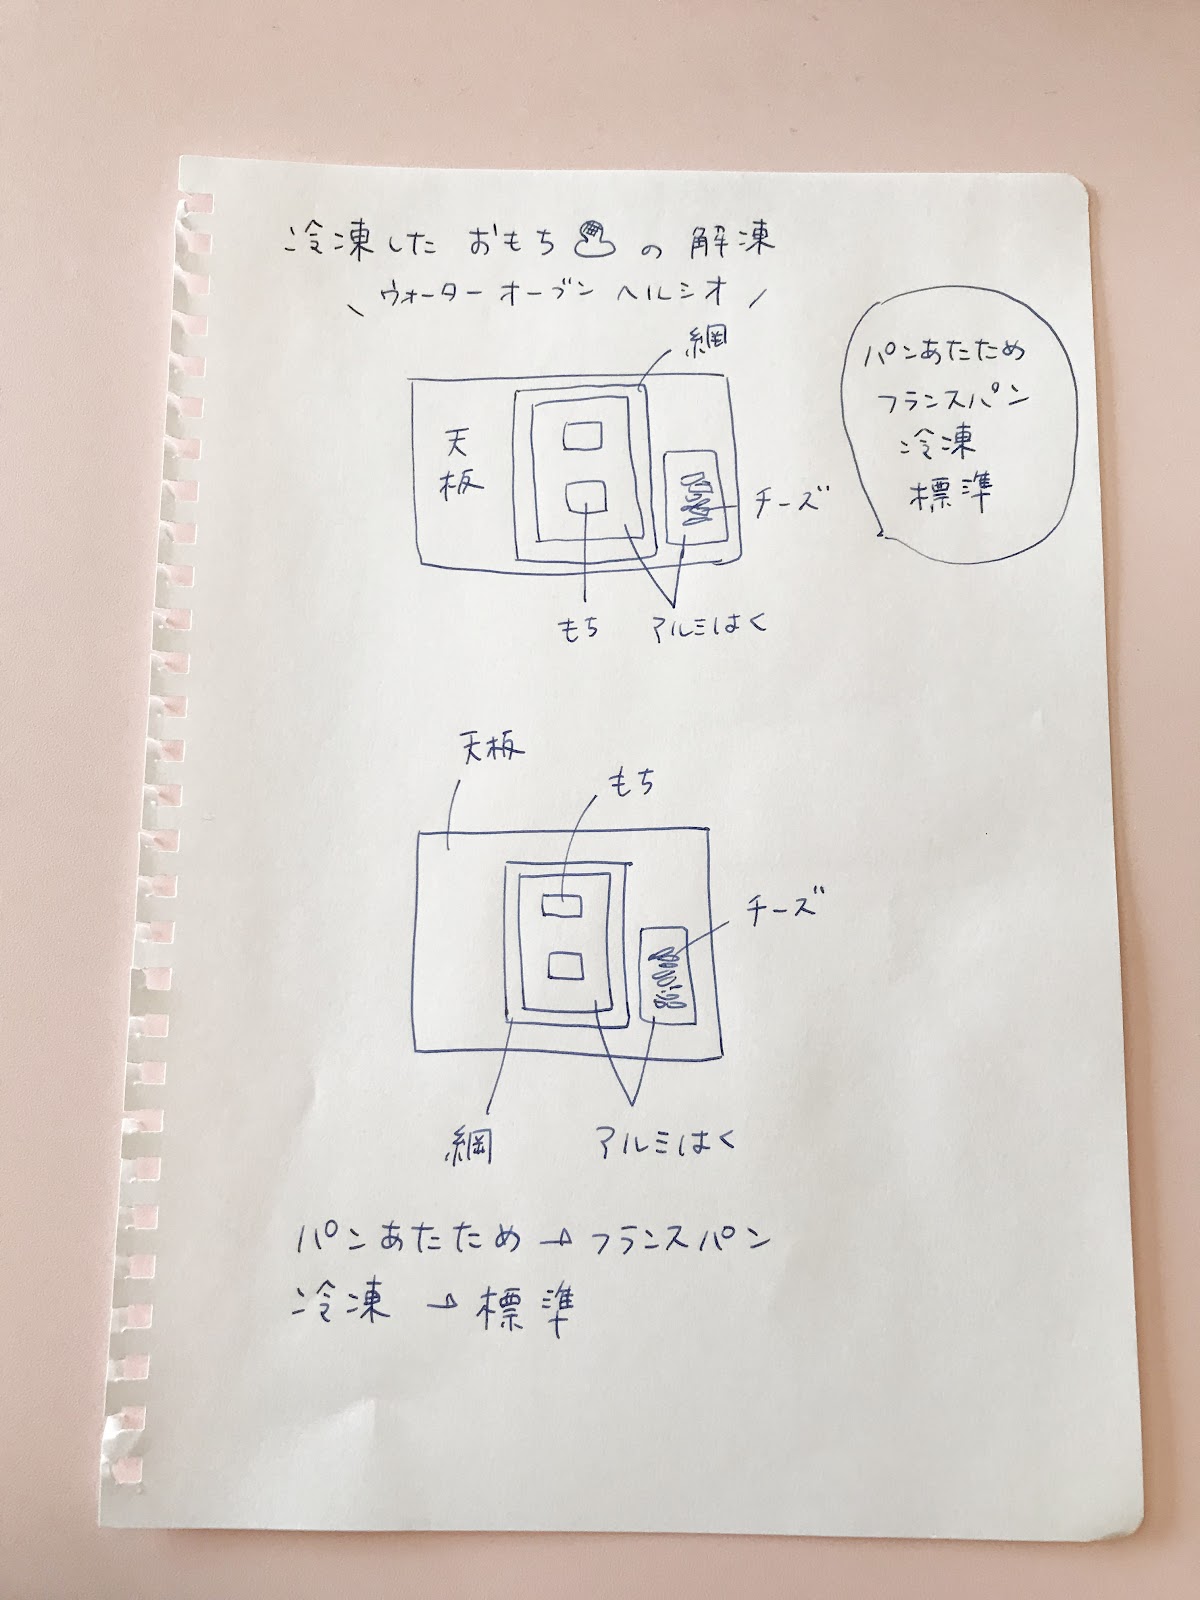 冷凍した おもち の 解凍
\ ウォーター オーブン ヘルシオ /
網
パンあたため
フランスパン
冷凍
標準
天板
チーズ
もち
アルミはく
天板
もち
チーズ
網
アルミはく
パンあたため → フランスパン
冷凍 → 標準